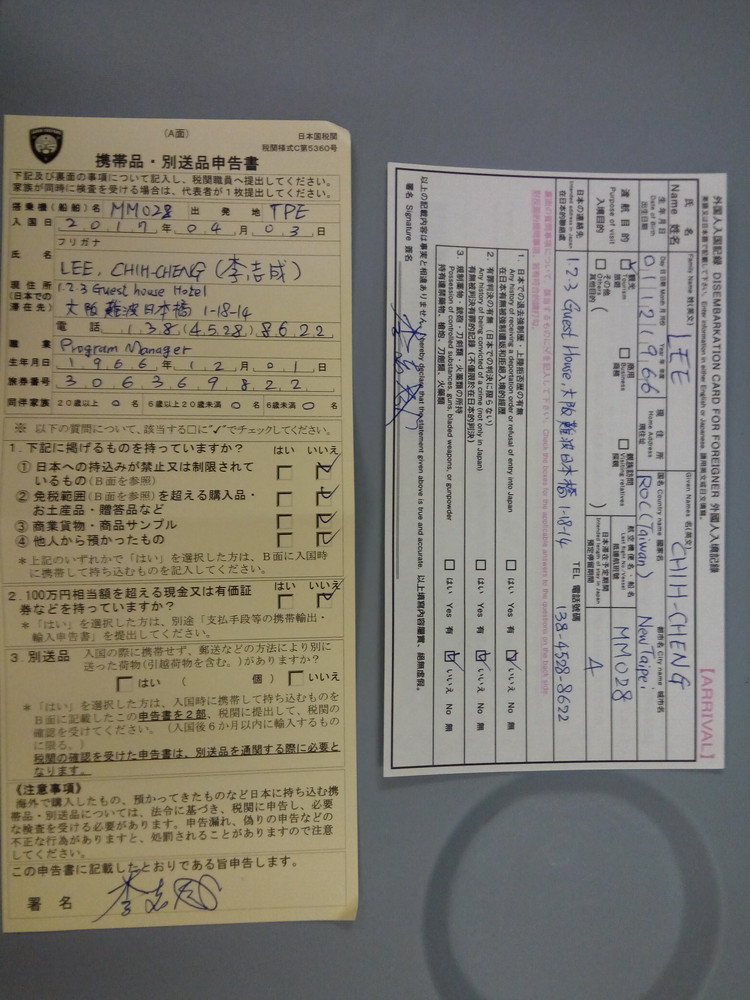 (A面)
日本国税関
税関様式C第5360号
携帯品・別送品申告書
下記及び裏面の事項について記入し、税関職員へ提出してください。
家族が同時に検査を受ける場合は、代表者が1枚提出してください。
搭乗機(船舶)名 MM028 出発地 TPE
入国日 2,0,1,7,年 0,4,月 0,3,日
フリガナ
氏名 LEE, CHIH-CHENG (李吉成)
現住所(日本での滞在先) 1.2.3 Guest house Hotel
大阪難波日本橋 1-18-14
電話 138(4528)8622
職業 Program Manager
生年月日 1,9,6,6,年 1,2,月 0,1,日
旅券番号 3,0,6,3,6,9,8,2,2
同伴家族 20歳以上 0 名 6歳以上20歳未満 0 名 6歳未満 0 名
※ 以下の質問について、該当する□に"✓"でチェックしてください。
1. 下記に掲げるものを持っていますか? はい いいえ
① 日本への持込みが禁止又は制限されているもの(B面を参照)
② 免税範囲(B面を参照)を超える購入品・お土産品・贈答品など
③ 商業貨物・商品サンプル
④ 他人から預かったもの
*上記のいずれかで「はい」を選択した方は、B面に入国時に携帯して持ち込むものを記入してください。
2. 100万円相当額を超える現金又は有価証券などを持っていますか? はい いいえ
*「はい」を選択した方は、別途「支払手段等の携帯輸出・輸入申告書」を提出してください。
3. 別送品 入国の際に携帯せず、郵送などの方法により別に送った荷物(引越荷物を含む。)がありますか?
□はい ( 個) □いいえ
*「はい」を選択した方は、入国時に携帯して持ち込むものをB面に記載したこの申告書を2部、税関に提出して、税関の確認を受けてください。(入国後6か月以内に輸入するものに限る。)
税関の確認を受けた申告書は、別送品を通関する際に必要となります。
《注意事項》
海外で購入したもの、預かってきたものなど日本に持ち込む携帯品・別送品については、法令に基づき、税関に申告し、必要な検査を受ける必要があります。申告漏れ、偽りの申告などの不正な行為がありますと、処罰されることがありますので注意してください。
この申告書に記載したとおりである旨申告します。
署名 李吉成
外国人入国記録 DISEMBARKATION CARD FOR FOREIGNER 外國人入境記錄
【ARRIVAL】
氏名 Name 姓名
Family Name 姓(英文) LEE
Given Names 名(英文) CHIH-CHENG
生年月日 Date of Birth 出生日期
Day 日 Month 月 Year 年
01 12 1966
現住所 Home Address 現住址
国名 Country name 國家名 ROC (Taiwan)
都市名 City name 城市名 New Taipei
渡航目的 Purpose of visit 入境目的
観光 Tourism 旅遊
商用 Business 商務
親族訪問 Visiting relatives 探親
その他 Others 其他目的 ( )
航空機便名・船名 Last flight No./Vessel 抵達航班號 MM028
日本滞在予定期間 Intended length of stay in Japan 預定停留期間 4
日本の連絡先 Intended address in Japan 在日本的聯絡處
1.2.3 Guest House, 大阪難波日本橋 1-18-14
TEL 電話號碼 138-4528-8622
1. 日本での退去強制歴・上陸拒否歴の有無
Any history of receiving a deportation order or refusal of entry into Japan
在日本有無被強制遣返和拒絕入境的經歷
□ はい Yes 有 ☑ いいえ No 無
2. 有罪判決の有無(日本での判決に限らない)
Any history of being convicted of a crime (not only in Japan)
有無被判決有罪的記錄(不僅限於在日本的判決)
□ はい Yes 有 ☑ いいえ No 無
3. 規制薬物・銃砲・刀剣類・火薬類の所持
Possession of controlled substances, guns, bladed weapons, or gunpowder
持有違禁藥物、槍炮、刀劍類、火藥類
□ はい Yes 有 ☑ いいえ No 無
以上の記載内容は事実と相違ありません。I hereby declare that the statement given above is true and accurate. 以上填寫内容屬實,絕無虛假。
署名 Signature 簽名 李吉成